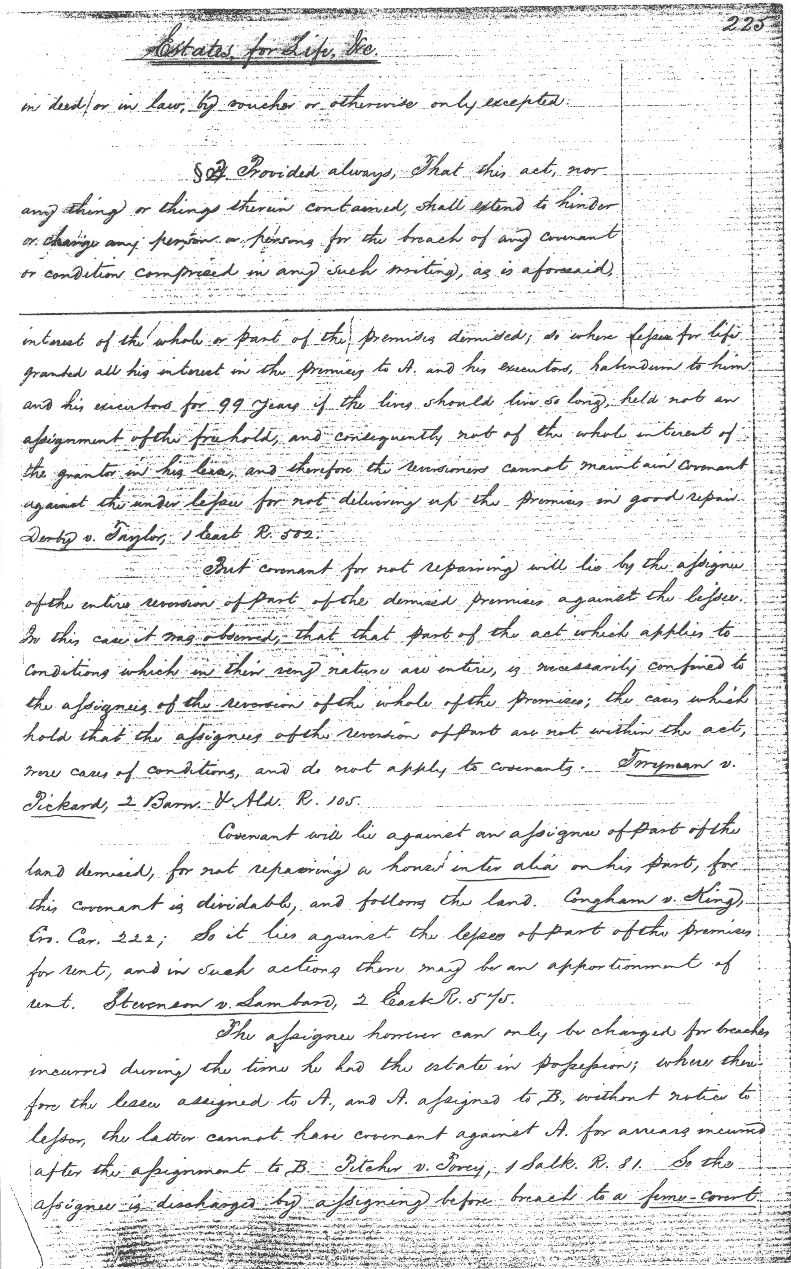 225
Estates, for Life, &c.
in deed or in law, by voucher or otherwise only excepted.
§ Provided always, That this act, nor
any thing or things therein contained, shall extend to hinder
or change any person or persons for the breach of any covenant
or condition comprised in any such writing, as is aforesaid,
interest of the whole or part of the premises demised; so where lessee for life
granted all his interest in the premises to A. and his executors, habendum to him
and his executors for 99 years if the lives should live so long, held not an
assignment of the freehold, and consequently not of the whole interest of
the grantor in his lease, and therefore the reversioners cannot maintain covenant
against the under lessee for not delivering up the premises in good repair.
Derby v. Taylor, 1 East R. 502.
But covenant for not repairing will lie by the assignee
of the entire reversion of part of the demised premises against the lessee.
In this case it was observed, that that part of the act which applies to
conditions which in their very nature are entire, is necessarily confined to
the assignees of the reversion of the whole of the premises; the cases which
hold that the assignees of the reversion of part are not within the act,
were cases of conditions, and do not apply to covenants. Twynam v.
Pickard, 2 Barn. & Ald. R. 105.
Covenant will lie against an assignee of part of the
land demised, for not repairing a house inter alia on his part, for
this covenant is dividable, and follows the land. Congham v. King,
Cro. Car. 222; So it lies against the lessee of part of the premises
for rent, and in such actions there may be an apportionment of
rent. Stevenson v. Lambard, 2 East R. 575.
The assignee however can only be charged for breaches
incurred during the time he had the estate in possession; where there-
fore the lessee assigned to A., and A. assigned to B, without notice to
lessor, the latter cannot have covenant against A. for arrears incurred
after the assignment to B. Pitcher v. Tovey, 1 Salk. R. 81. So the
assignee is discharged by assigning before breach to a feme-covert